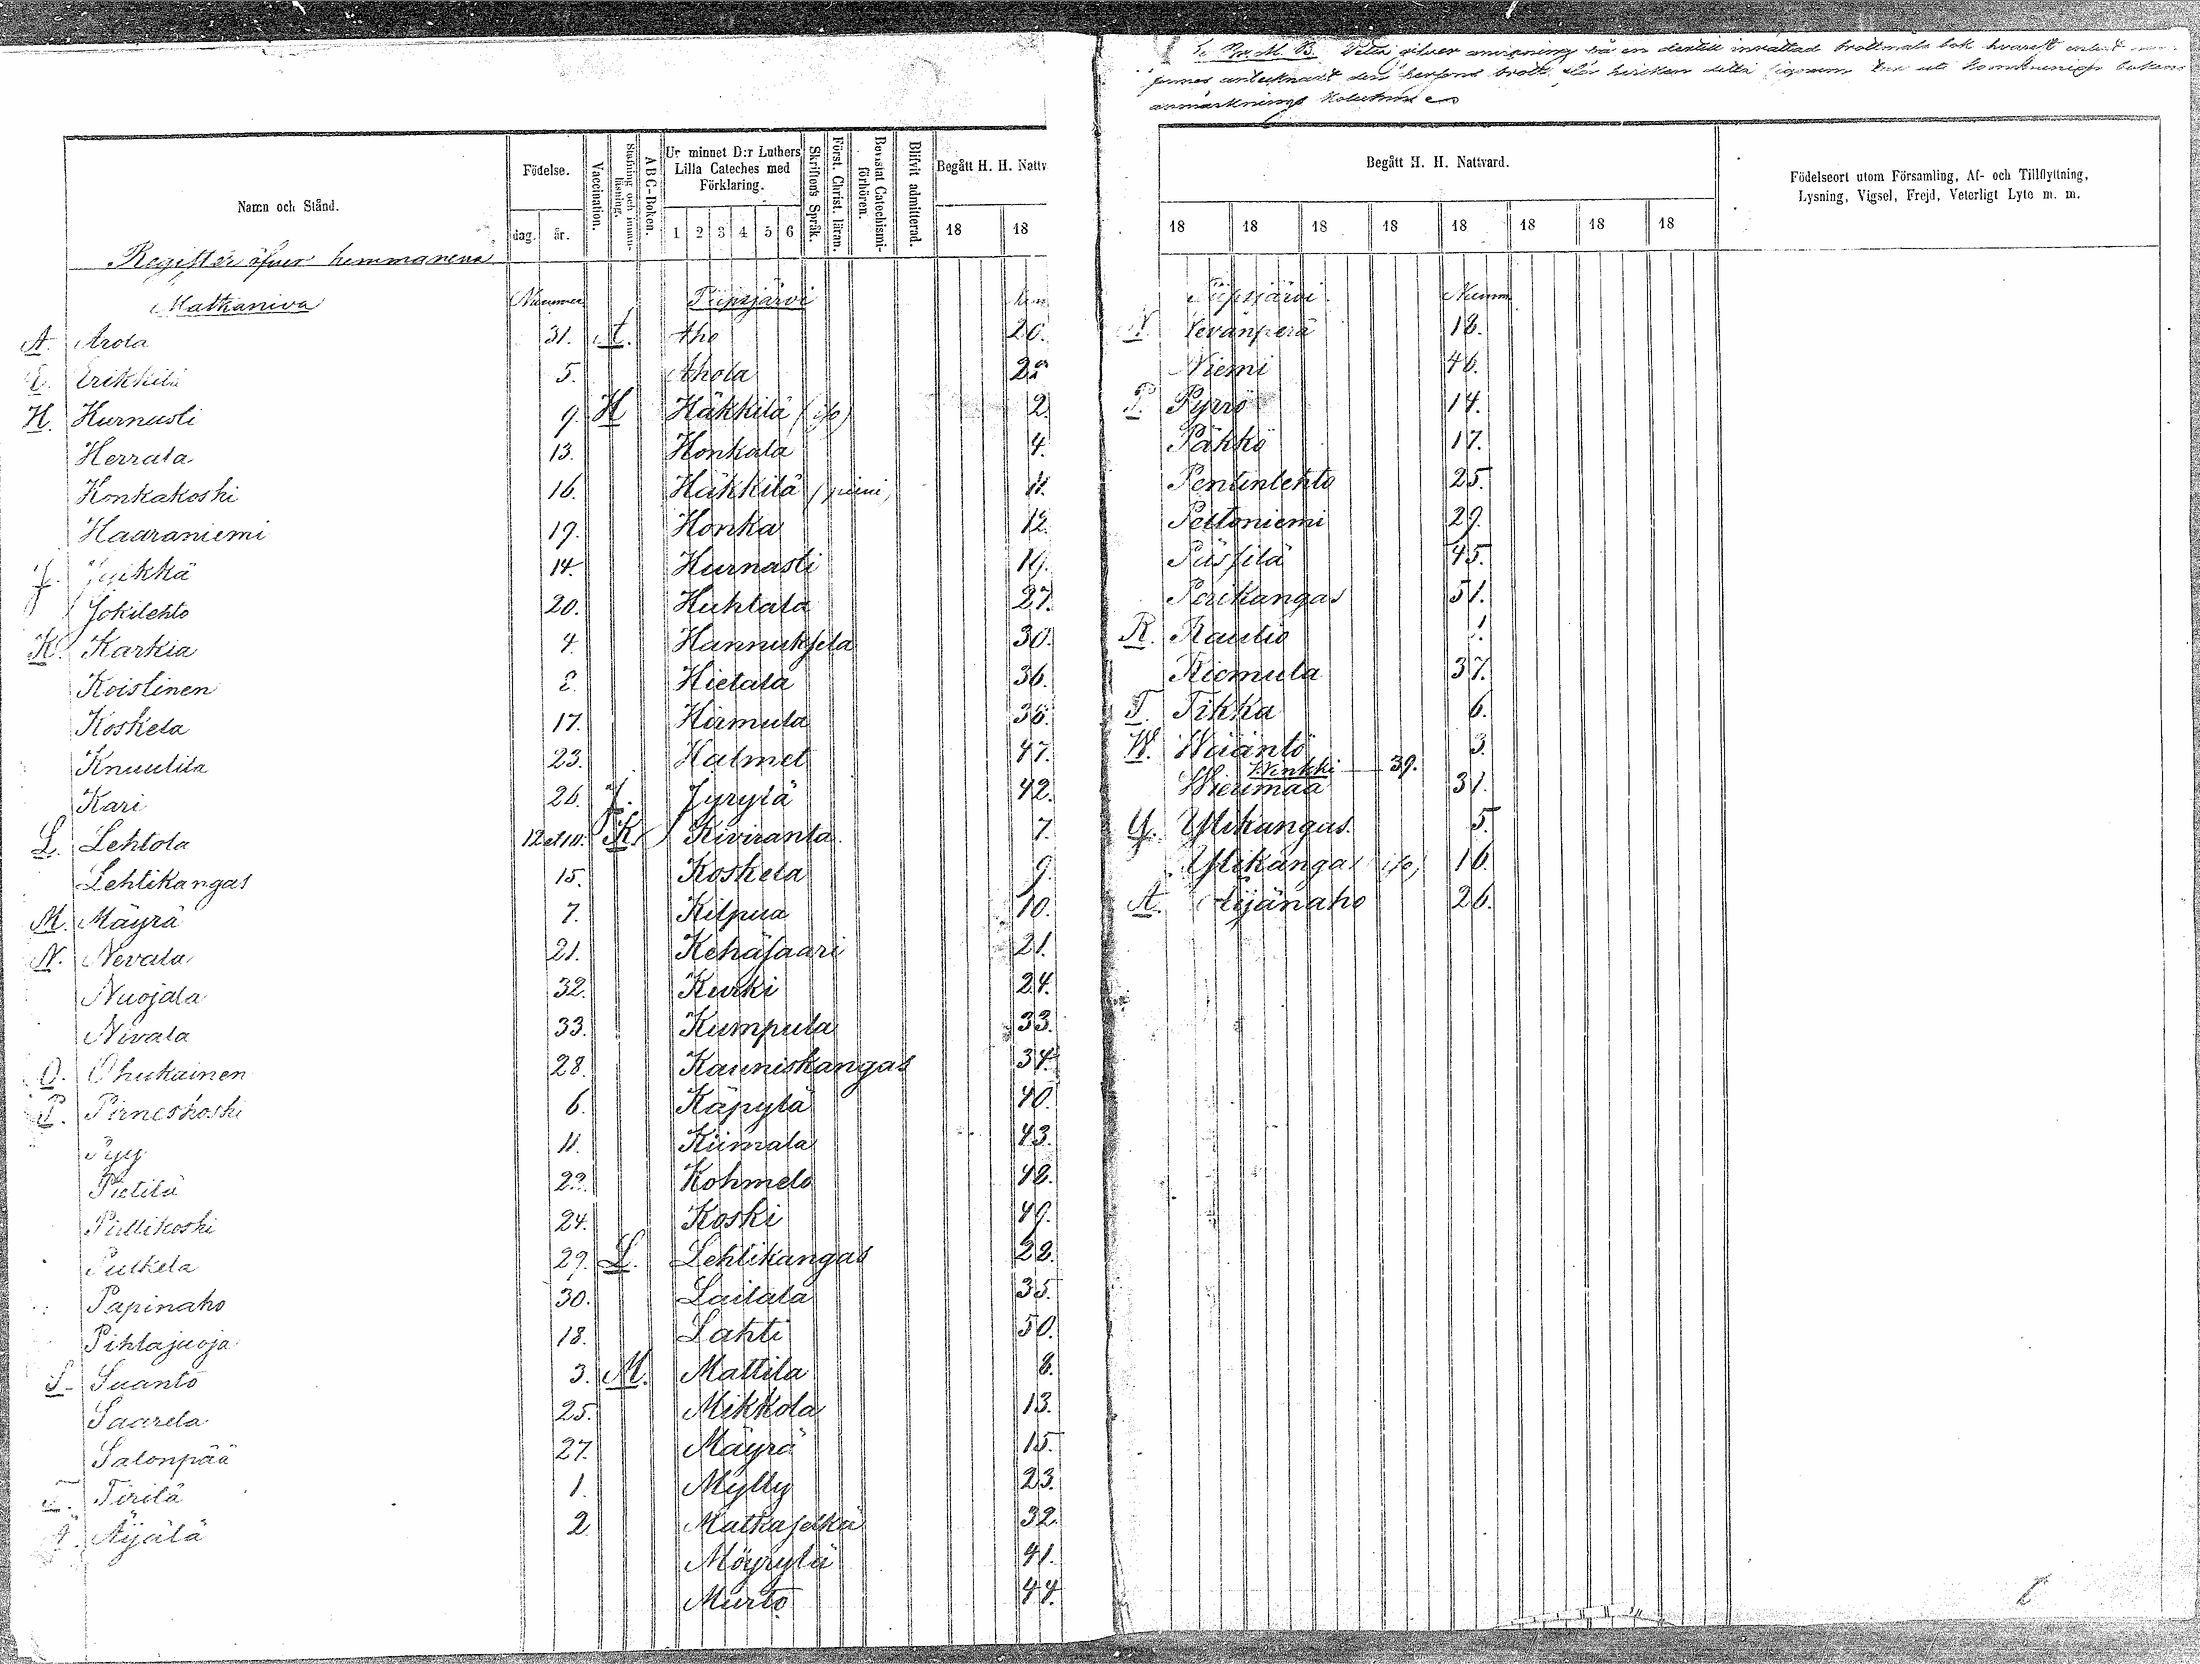 anmärknings kolumnen
Namn och Stånd.
Födelse.
dag. år.
Vaccination.
ABC-Boken.
Ur minnet D:r Luthers Lilla Cateches med Förklaring.
1 2 3 4 5 6
Skriftens Språk.
Först. Christ. läran.
Bevistat Catechismi-förhören.
Blifvit admitterad.
Begått H. H. Nattv
18 18
Register öfver hemmanena
Matkaniva Nummer
A. Arola 31.
E. Erikkilä 5.
H. Hurnasti 9.
Herrala 13.
Honkakoski 16.
Haaraniemi 19.
J. Jyikkä 14.
Jokilehto 20.
K. Karkia 4.
Koistinen 2.
Koskela 17.
Knuutila 23.
Kari 26.
L. Lehtola 12 et 10.
Lehtikangas 15.
M. Mäyrä 7.
N. Nevala 21.
Nuojala 32.
Nivala 33.
O. Ohukainen 28.
P. Pirneskoski 6.
Pyy 11.
Pietilä 22.
Pirttikoski 24.
Putkela 29.
Papinaho 30.
Pihlajuoja 18.
S. Suanto 3.
Saarela 25.
Salonpää 27.
T. Tirilä 1.
Ä. Äijälä 2
Piipsjärvi
A. Aho 20.
Ahola 22
H Häkkilä (iso) 2.
Honkala 4.
Häkkilä (pieni) 11.
Honka 12.
Hurnasti 19.
Huhtala 27.
Hannuksela 30.
Hietala 36.
Hirmula 38.
Halmet 47.
J. Jyrylä 42.
K. Kiviranta 7.
Koskela 9.
Kilpua 10.
Kehäsaari 21.
Kurki 24.
Kumpula 33.
Kauniskangas 34.
Käpylä 40.
Kiimala 43.
Kohmelo 48.
Koski 49.
L. Lehtikangas 28.
Lailala 35.
Lahti 50.
M. Mattila 8.
Mikkola 13.
Mäyrä 15.
Mylly 23.
Matkaselkä 32.
Möyrylä 41.
Murto 44.
Begått H. H. Nattvard.
18 18 18 18 18 18 18 18
Födelseort utom Församling, Af- och Tillflyttning,
Lysning, Vigsel, Frejd, Veterligt Lyte m. m.
Piipsjärvi Numm
N. Nevanperä 18.
Niemi 46.
P. Pyrrö 14.
Päkkö 17.
Pentinlehto 25.
Peltoniemi 29.
Piispilä 45.
Perikangas 51.
R. Rautio 1.
Riomula 37.
T. Tikka 6.
W. Wäänto 3.
Winkki 39.
Wieumaa 31.
Y. Ylikangas 5.
Ylikangas iso) 16.
Ä. Äijänaho 26.